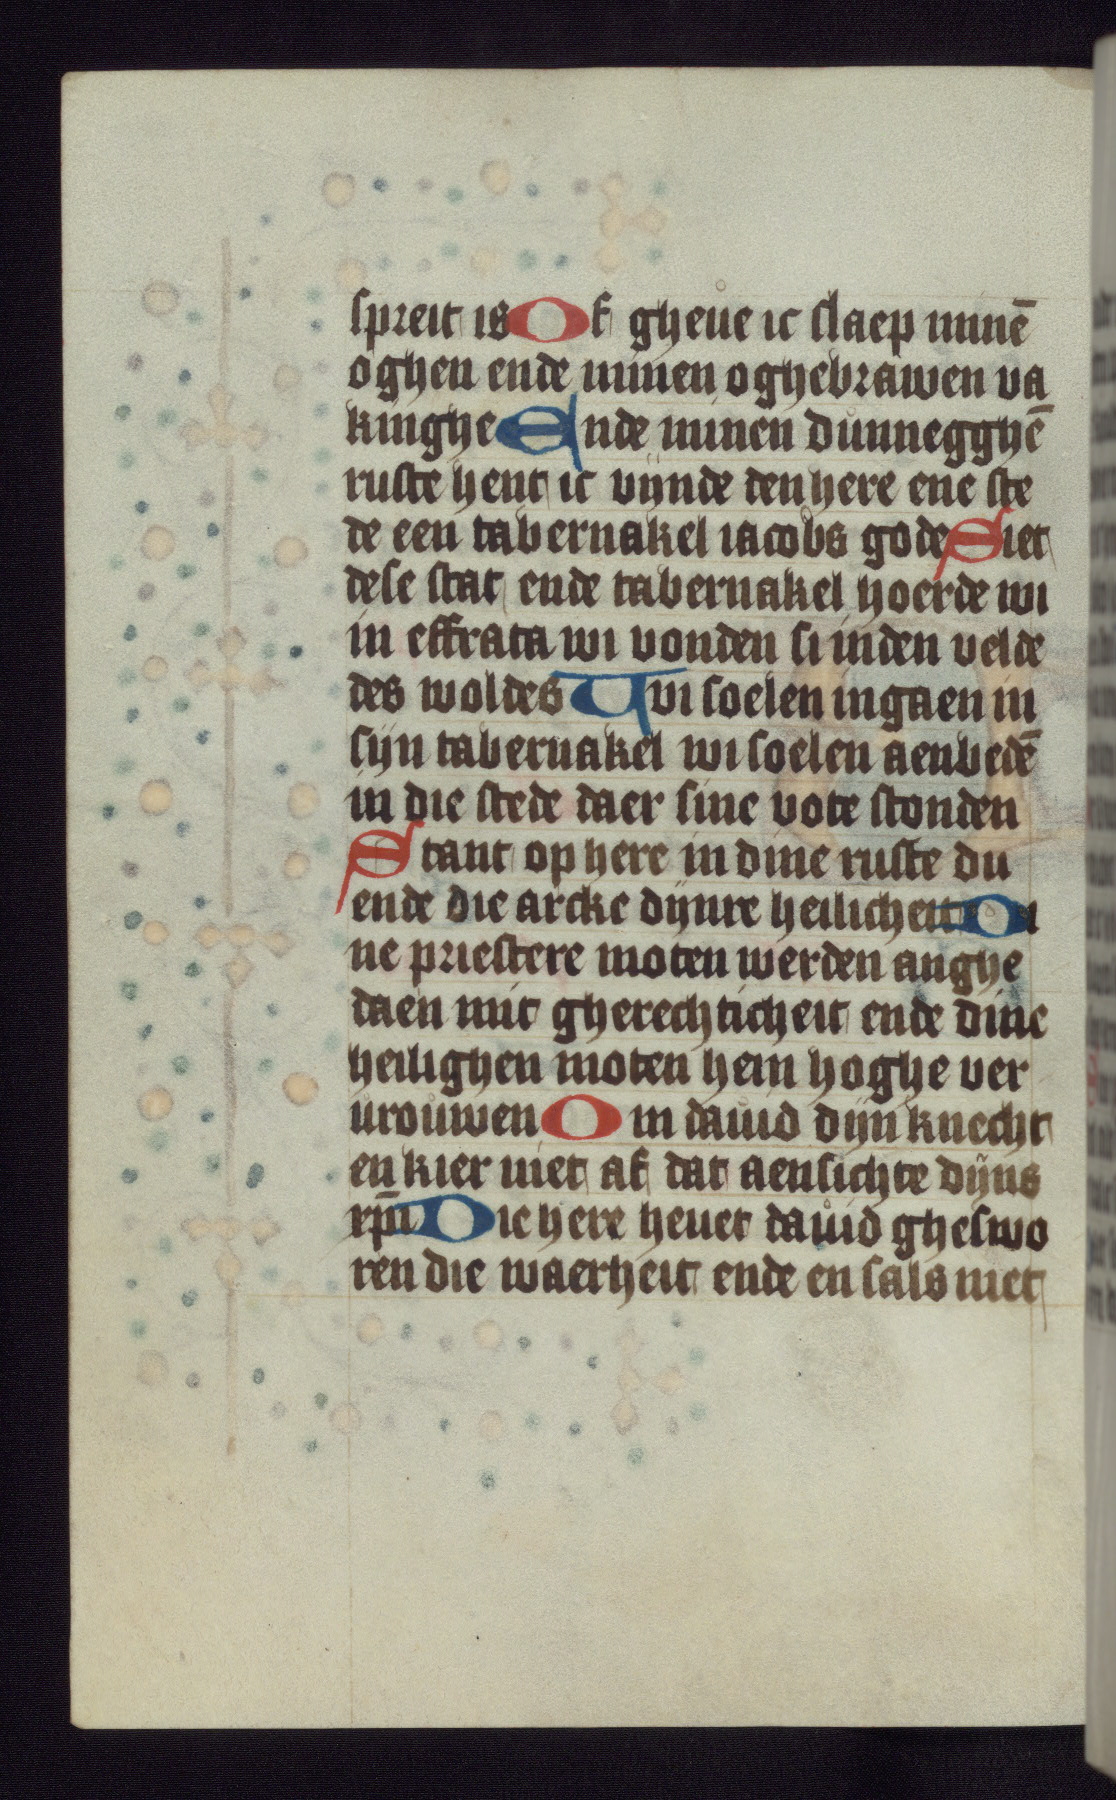 spreit is Of gheue ic slaep minē
oghen ende minen oghebrawen va
kinghe Ende minen dunnegghē
ruste hent ic vijnde den here ene ste
de een tabernakel iacobs gode Siet
dese stat ende tabernakel hoerde wi
in effrata wi vonden si inden velde
des woldes Wi soelen ingaen in
sijn tabernakel wi soelen aenbedē
in die stede daer sine vote stonden
Stant op here in dine ruste du
ende die arcke dijnre heilicheit Di
ne priestere moten werden anghe
daen mit gherechticheit ende dine
heilighen moten hem hoghe ver
urouwen Om dauid dijn knecht
en kier niet af dat aensichte dijns
xp̄i Die here heuet dauid gheswo
ren die waerheit ende en sals niet